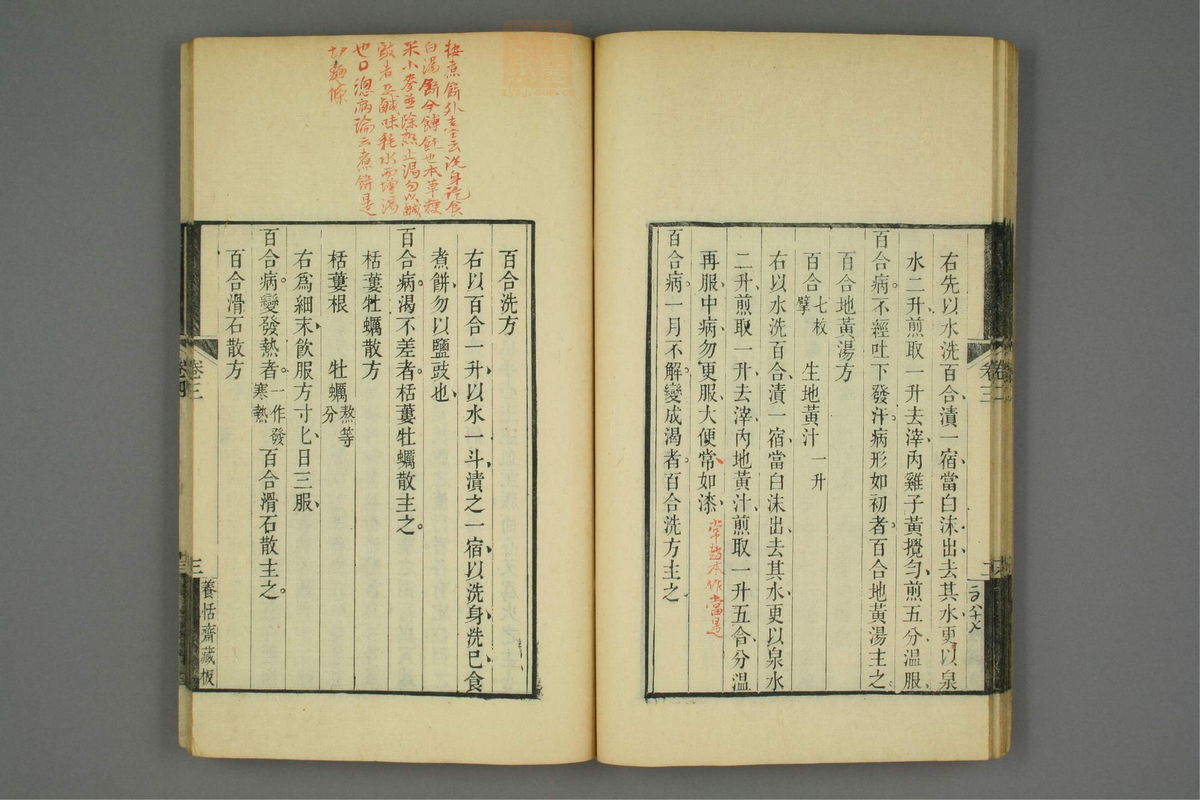 右先以水洗百合漬一宿當白沫出去其水更以泉
水二升煎取一升去滓內雞子黃攪勻煎五分溫服
百合病不經吐下發汗病形如初者百合地黃湯主之
百合地黃湯方
百合七枚擘 生地黃汁一升
右以水洗百合漬一宿當白沫出去其水更以泉水
二升煎取一升去滓內地黃汁煎取一升五合分溫
再服中病勿更服大便常如漆
常趙本作當是
百合病一月不解變成渴者百合洗方主之
卷三
三
按煮餅外臺云洗身訖食
白湯餅今餺飥也本草粳
米小麥並除熱止渴勿以鹹
豉者恐鹹味耗水而增渴
也口總病論云煮餅是
切麵條
百合洗方
右以百合一升以水一斗漬之一宿以洗身洗已食
煮餅勿以鹽豉也
百合病渴不差者栝蔞牡蠣散主之
栝蔞牡蠣散方
栝蔞根 牡蠣熬等分
右爲細末飲服方寸匕日三服
百合病變發熱者一作發寒熱百合滑石散主之
百合滑石散方
卷三
三
養恬齋藏板